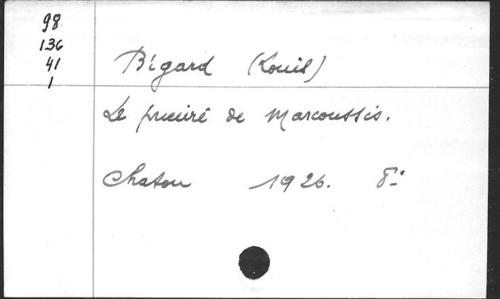 98
136
41
1
Bigard (Louis)
Le prieuré de Marcoussis.
Chatou 1926. 8°